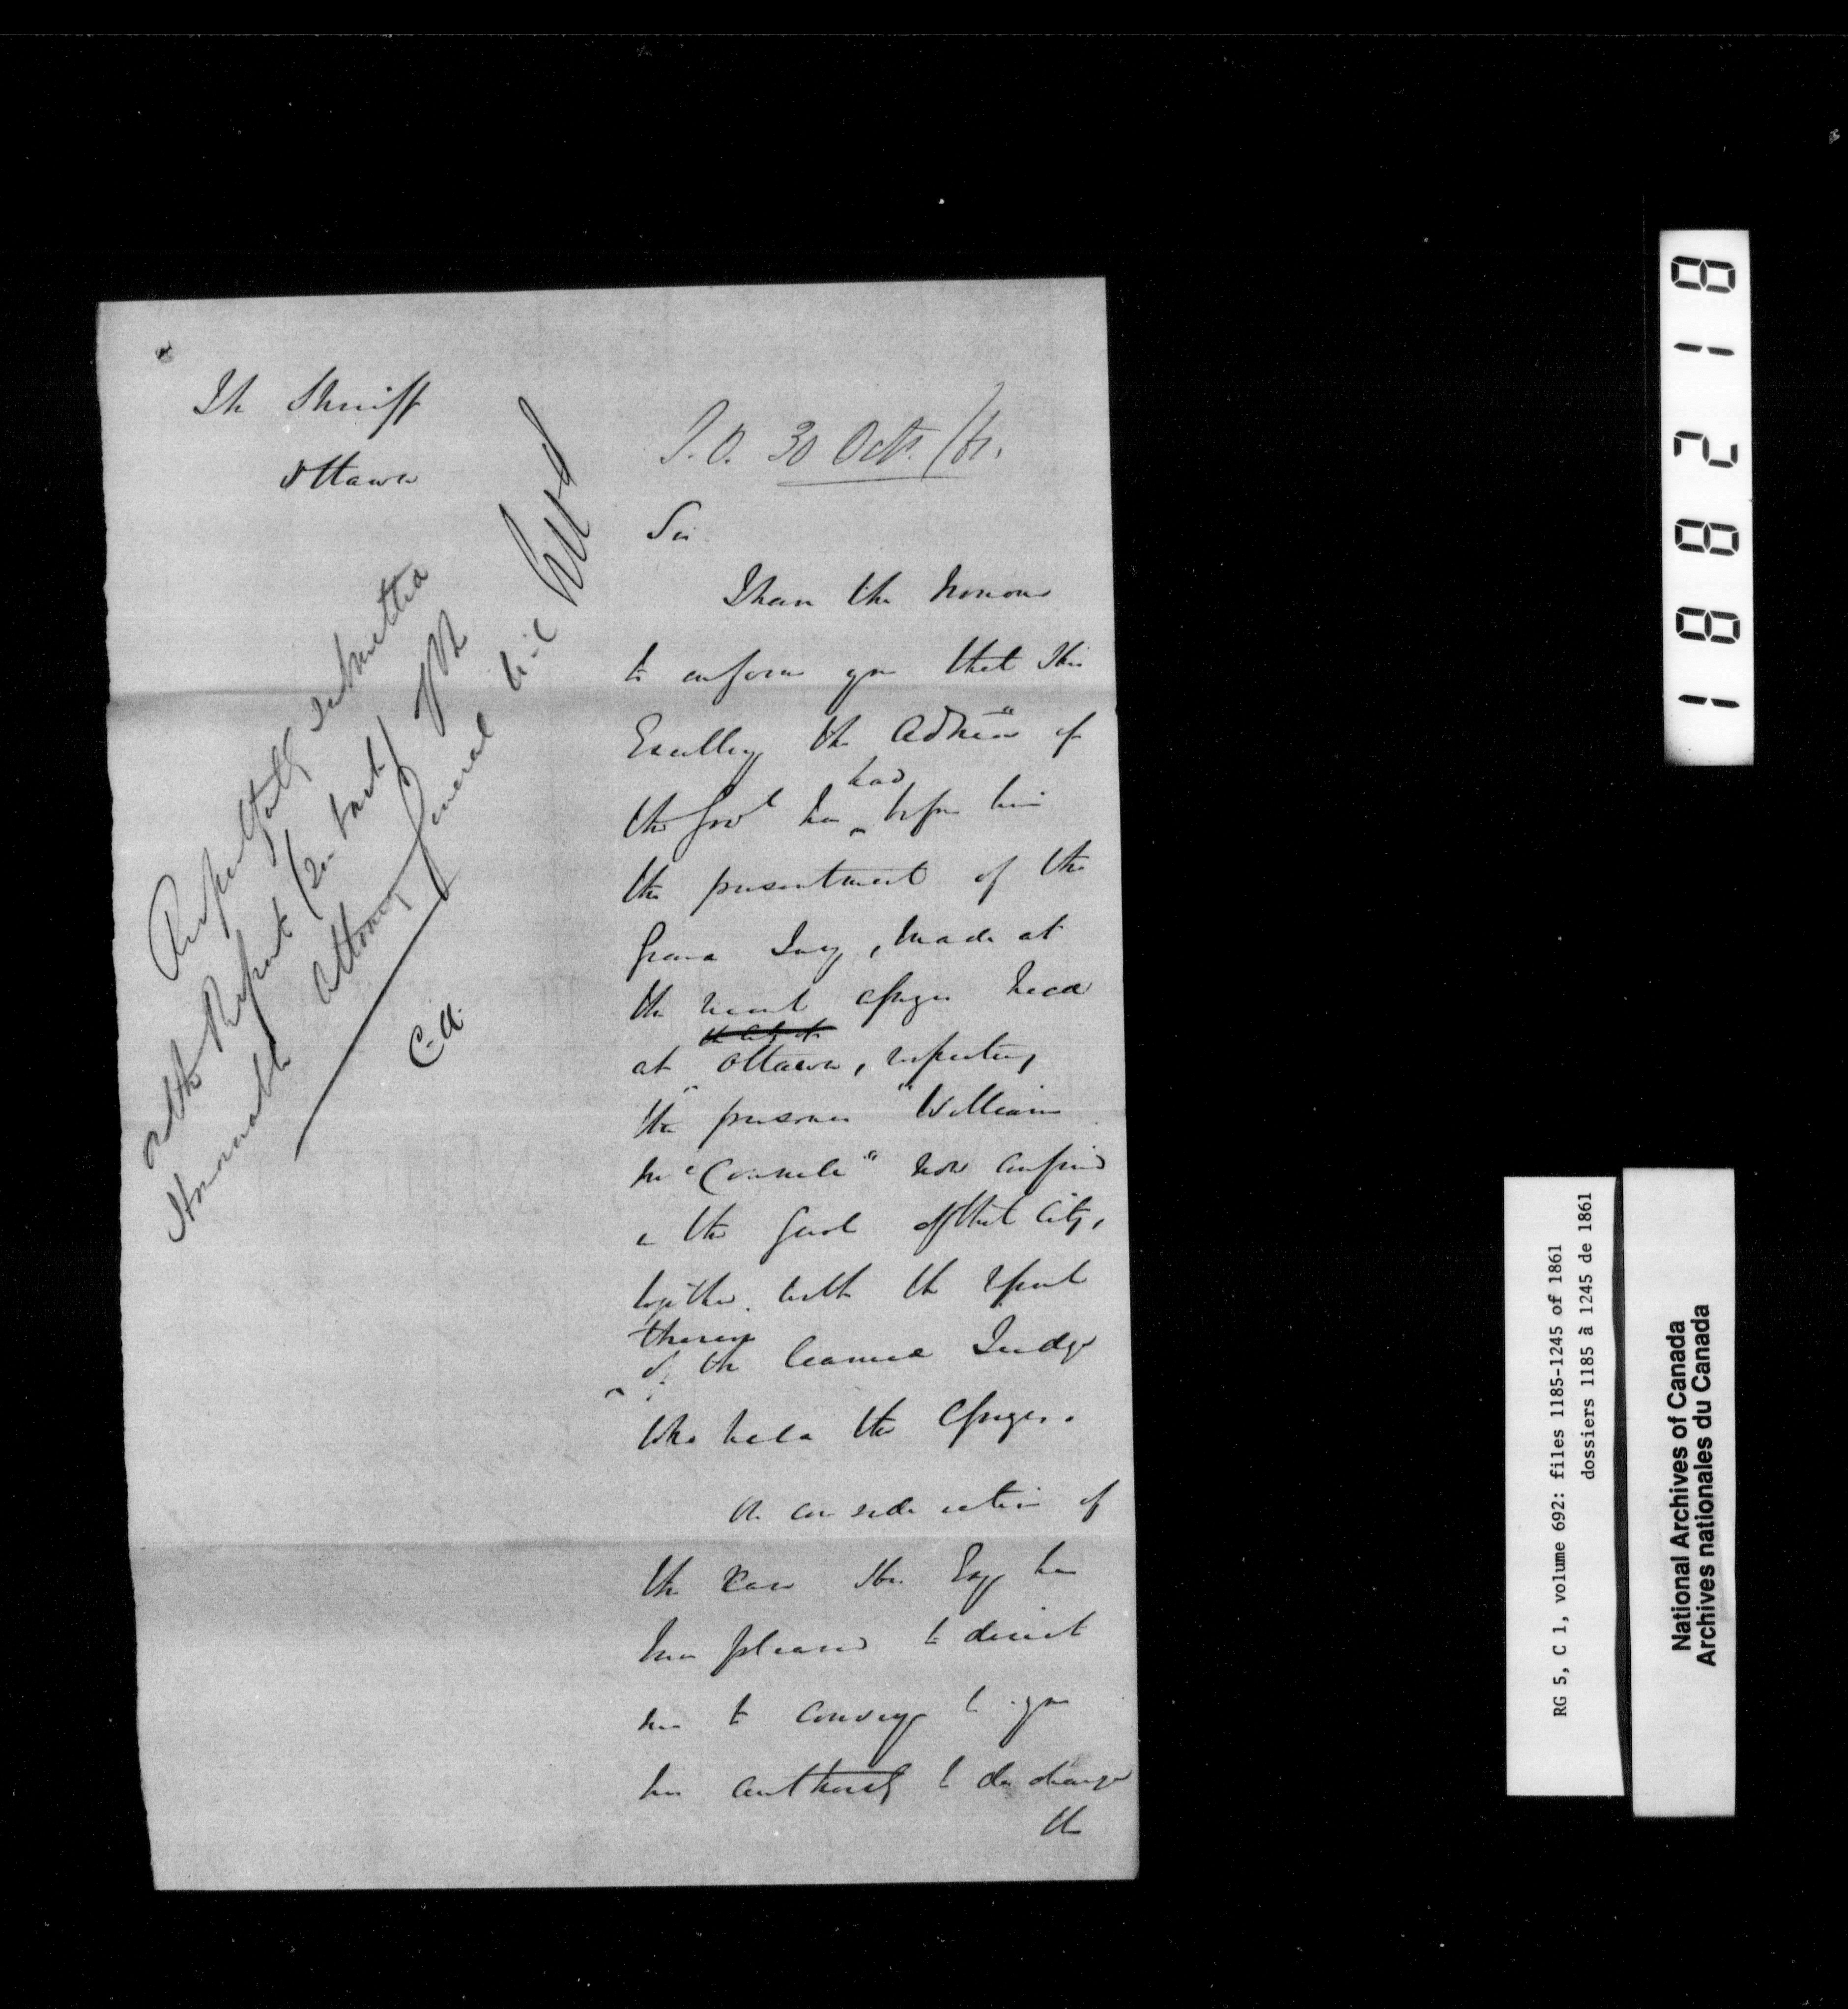 The Sheriff
Ottawa
S.O. 30 Octr. /61.
Sir
I have the honour
to inform you that His
Excellcy the Admr of
the Govt has had before him
the presentment of the
Grand Jury, made at
the recent assizes held
at the City of Ottawa, respecting
the prisoner "William
McConnele" now confined
in the Gaol of that City,
together with the report
thereon
of the learned Judge
who held the Assizes.
On consideration of
the case His Excy has
been pleased to direct
me to convey to you
his authority to discharge
the
Respectfully submitted
as the Report (on back) of the
Honorable Attorney General
C.A.
188218
RG 5, C 1, volume 692: files 1185-1245 of 1861
dossiers 1185 à 1245 de 1861
National Archives of Canada
Archives nationales du Canada